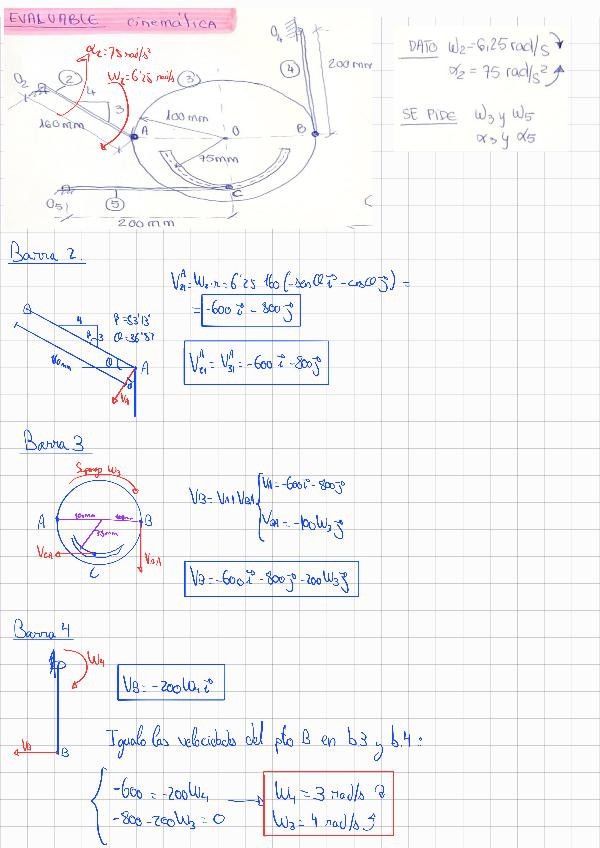 EVALUABLE cinemática
α₂=75 rad/s²
ω₂=6'25 rad/s
O₂
2
4
3
3
160mm
A
100mm
O
B
75mm
C
O₄
4
200mm
O₅
5
200mm
DATO ω₂=6,25 rad/s
α₂ = 75 rad/s²
SE PIDE ω₃ y ω₅
α₃ y α₅
Barra 2
V₂₁ᴬ=ω₂·r=6'25 160(-senθ i -cosθ j) =
= -600 i - 800 j
4
3
β=53'13°
θ=36'87
θ
A
160mm
V_A
V₂₁ᴬ = V₃₁ᴬ = -600 i - 800 j
Barra 3
Supongo ω₃
A
100mm
100mm
B
75mm
V_CA
V_BA
C
V_B = V_A + V_BA
V_A = -600 i - 800 j
V_BA = -100ω₃ j
V_B = -600 i - 800 j - 200ω₃ j
Barra 4
ω₄
V_B
B
V_B = -200ω₄ i
Igualo las velocidades del pto B en b3 y b.4:
-600 = -200ω₄
-800 - 200ω₃ = 0
ω₄ = 3 rad/s
ω₃ = 4 rad/s